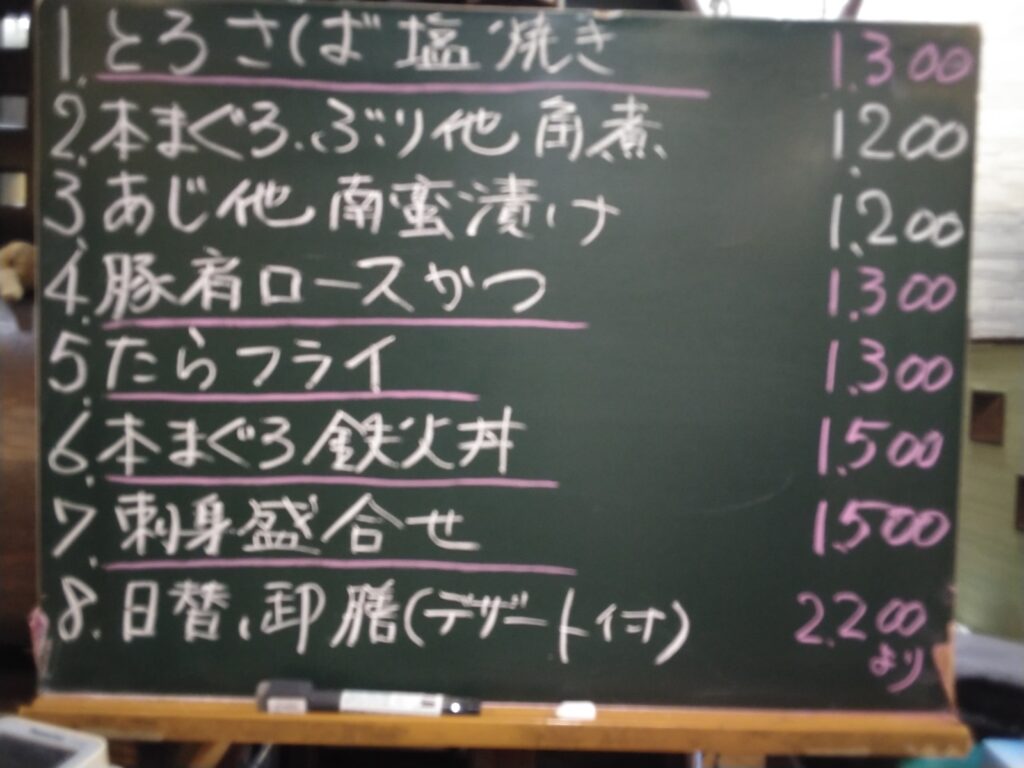 1.とろさば塩焼き 1.300
2.本まぐろ、ぶり他角煮 1.200
3、あじ他南蛮漬け 1.200
4.豚肩ロースかつ 1.300
5.たらフライ 1.300
6.本まぐろ鉄火丼 1.500
7.刺身盛合せ 1.500
8.日替、卸膳(デザート付) 2.200
より